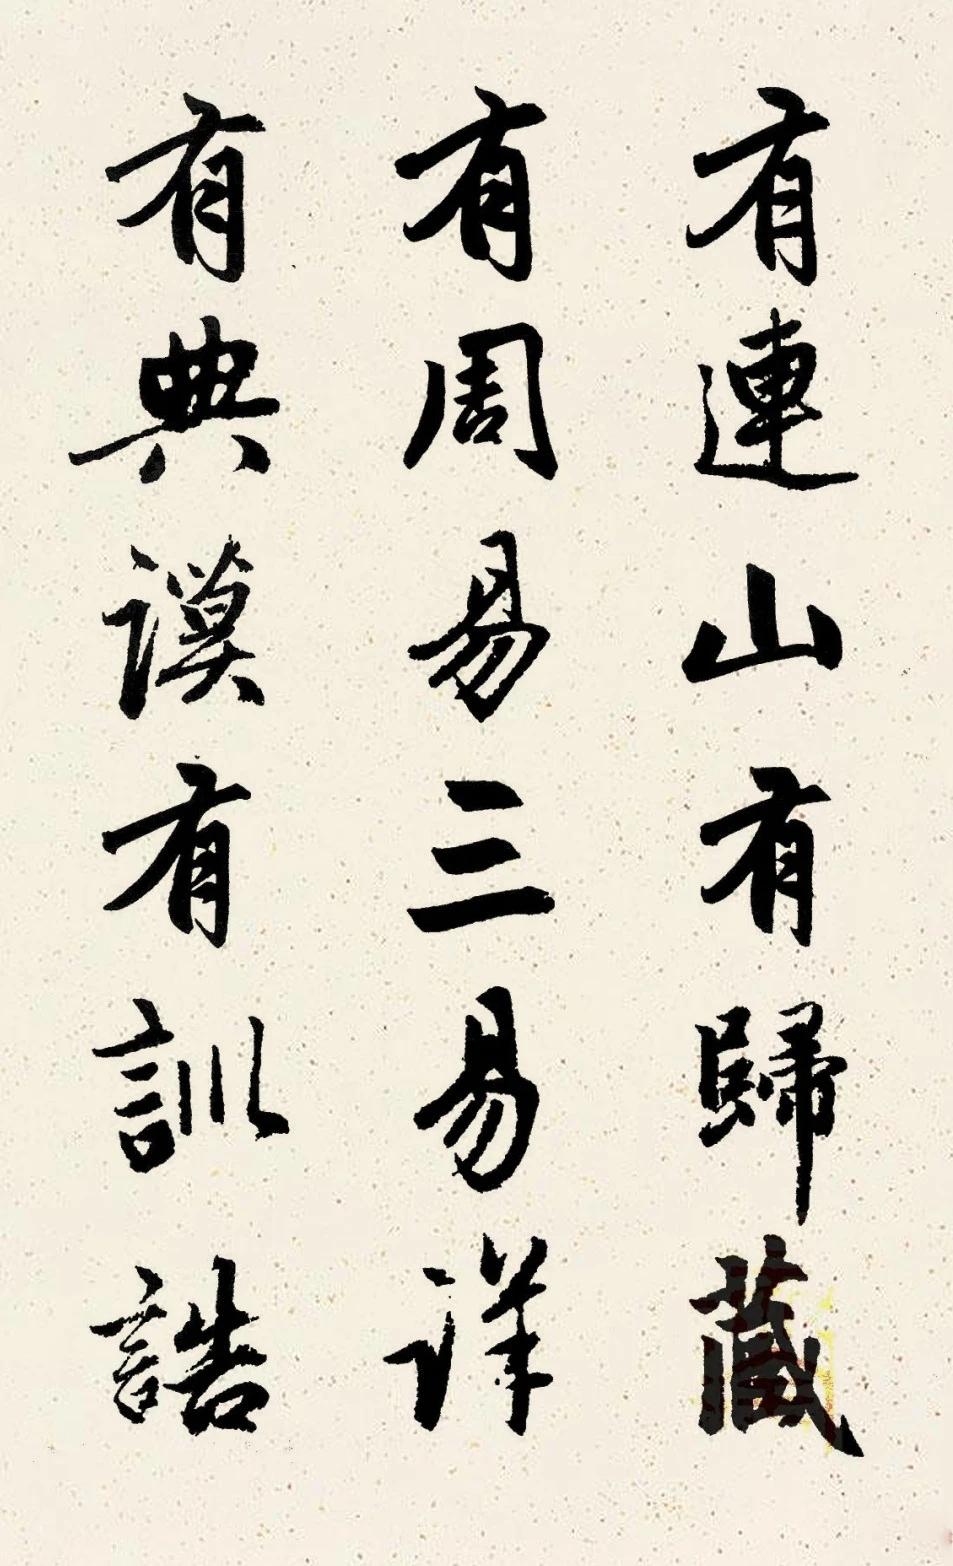 有連山有歸藏
有周易三易詳
有典謨有訓誥